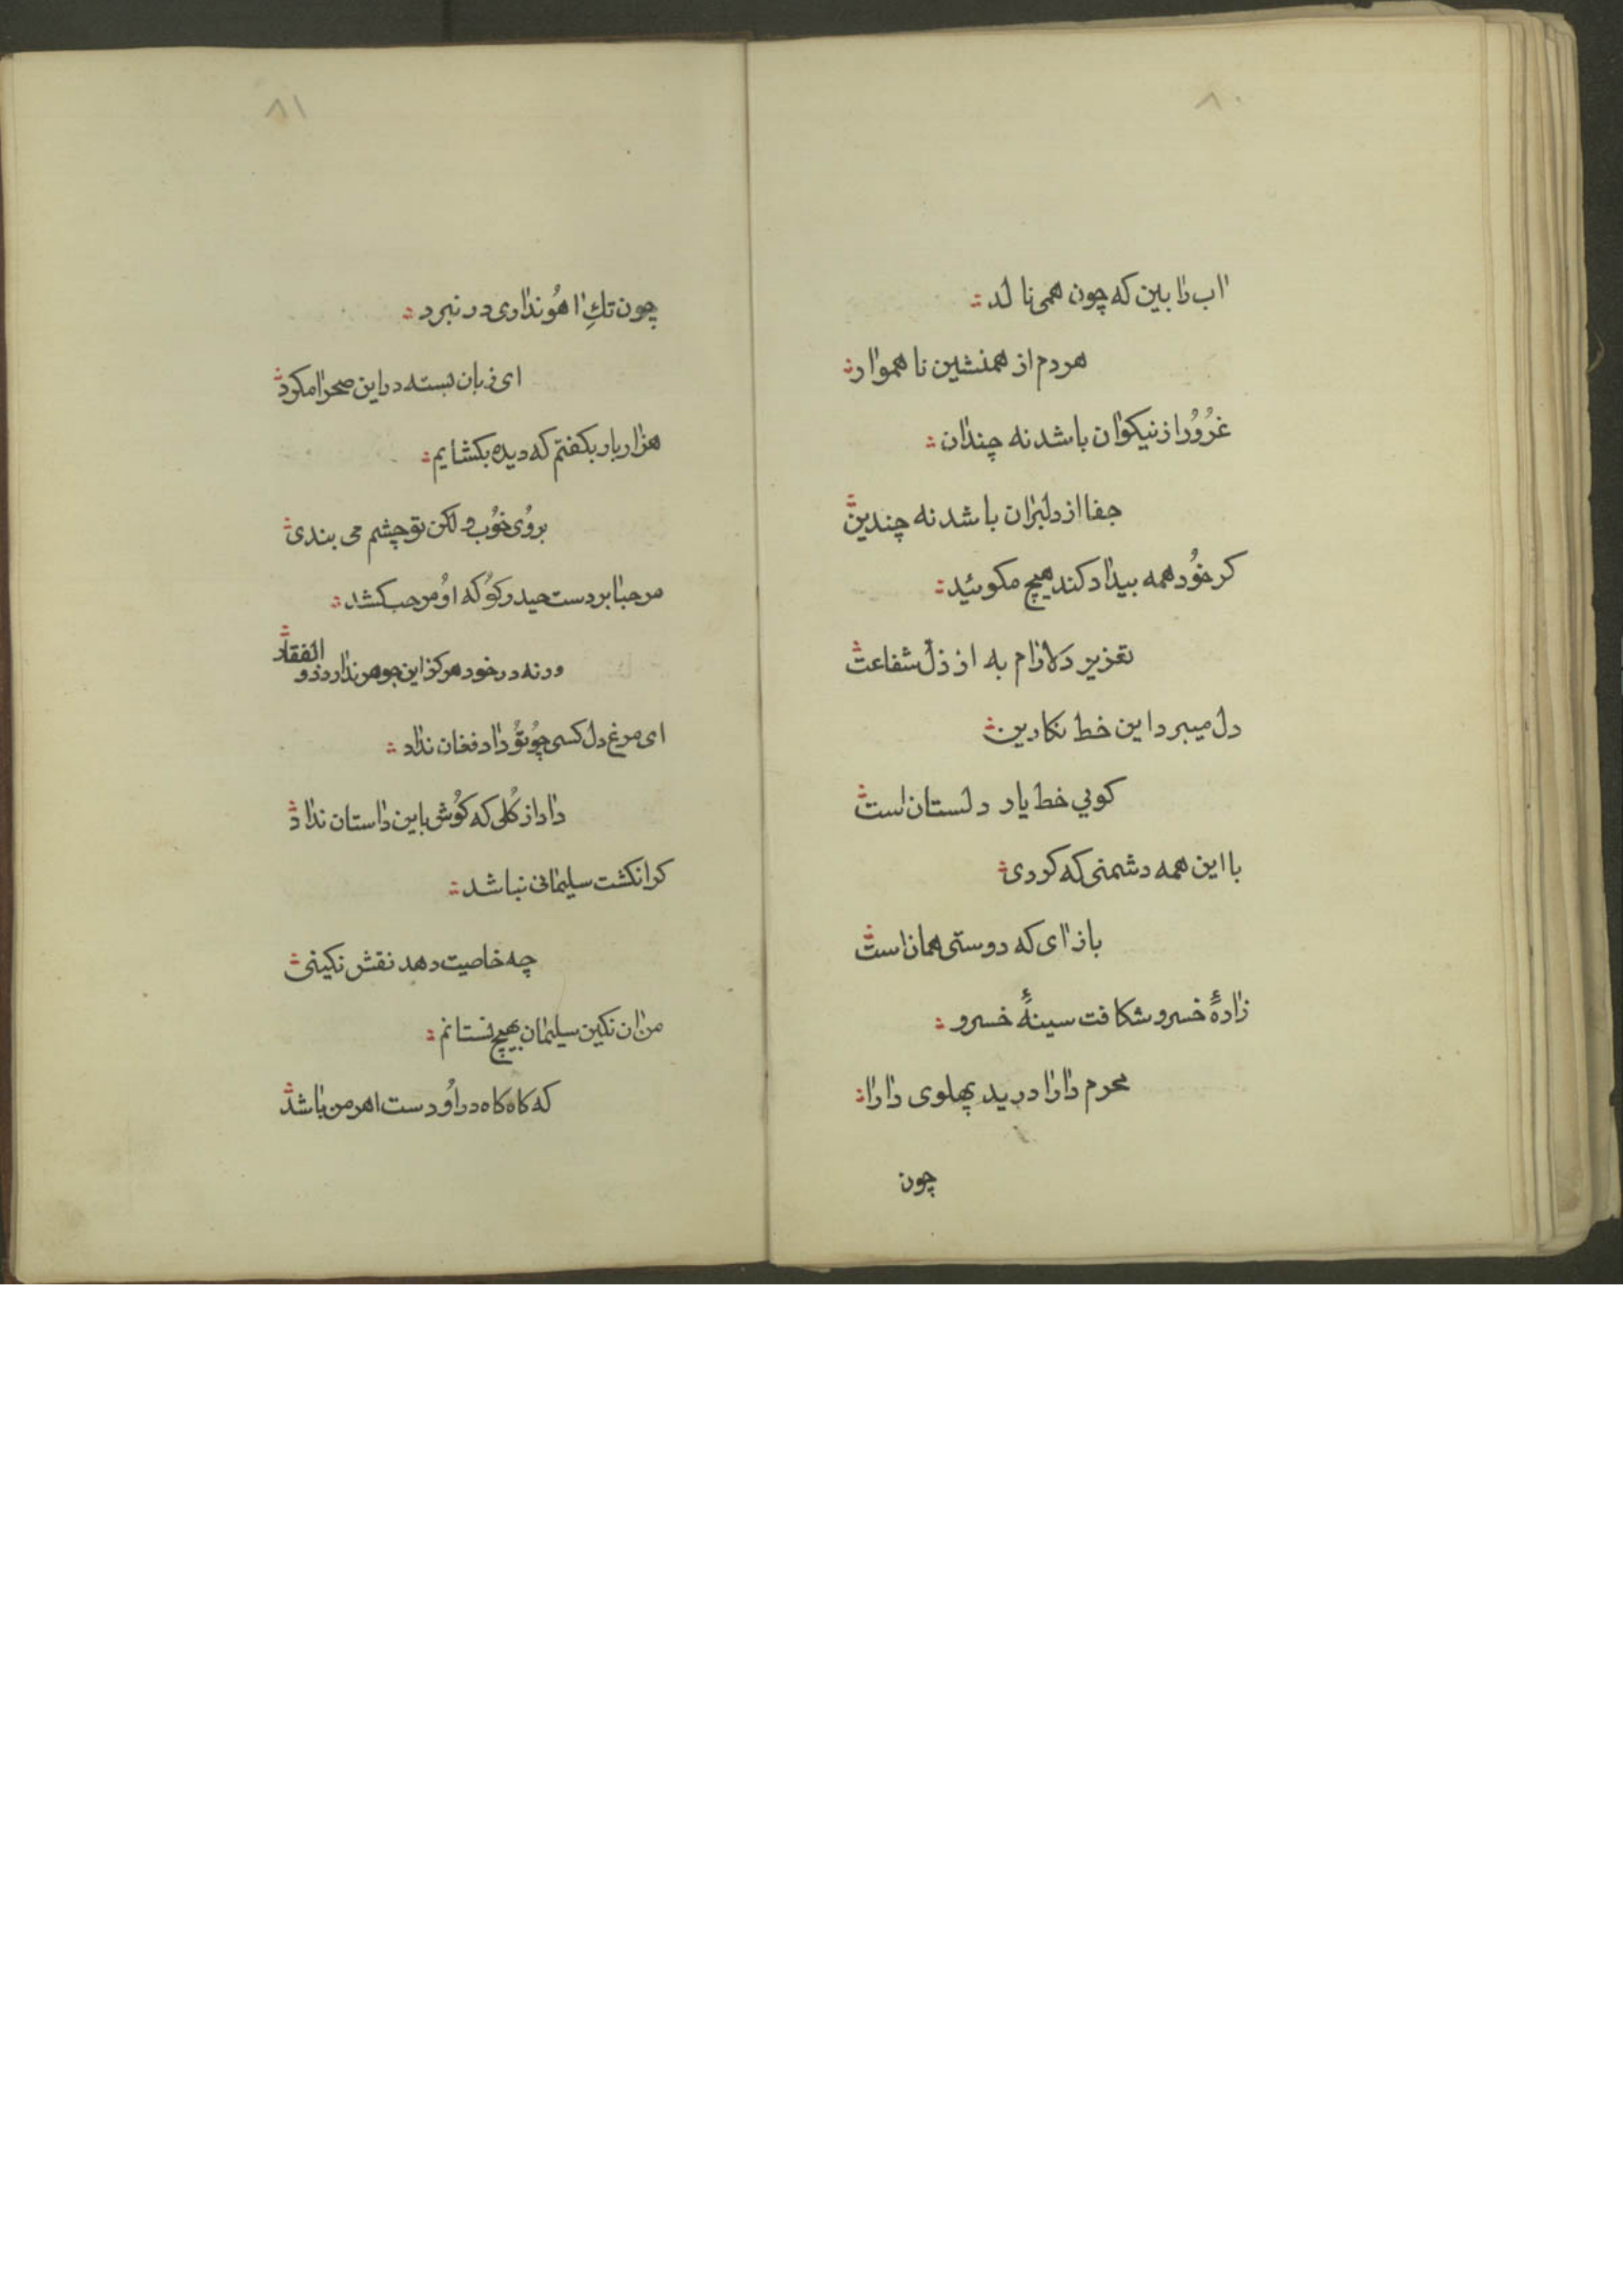 ٨٠
اب را بین که چون همی نالد
هر دم از همنشین ناهموار
غرُوُر از نیکوان باشد نه چندان
جفا از دلبران باشد نه چندین
کر خوُد همه بیداد کند هیچ مکوئید
تعزیز دلارام به از ذل شفاعت
دل میبرد این خط نکارین
کویی خط یار دلستان است
با این همه دشمنی که کردی
باز ای که دوستی همان است
زادهٔ خسرو شکافت سینهٔ خسرو
محرم دارا درید پهلوی دارا
چون
٨١
چون تكِ اهوُ نداری در نبرد
ای زبان بسته در این صحرا مکرد
هزار بار بکفتم که دیده بکشایم
بروُی خوُب ولکن تو چشم می بندی
مرحبا بر دست حیدر کوُ که اوُ مرحب کشد
ورنه در خود هرکز این جوهر ندارد ذو الفقار
ای مرغ دل کسی چوُ توُ داد فغان نداد
داد از کلُی که کوُش باین داستان نداد
کر انکشت سلیمانی نباشد
چه خاصیت دهد نقش نکینی
من ان نکین سلیمان بهیچ نستانم
که کاه کاه در اوُ دست اهرمن باشد